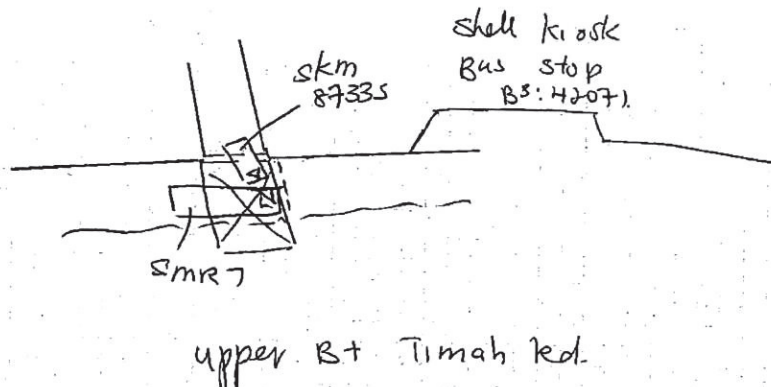 Shell kiosk
Bus stop
BS: 42071.
SKM
8733S
SMR7
upper Bt Timah Rd.